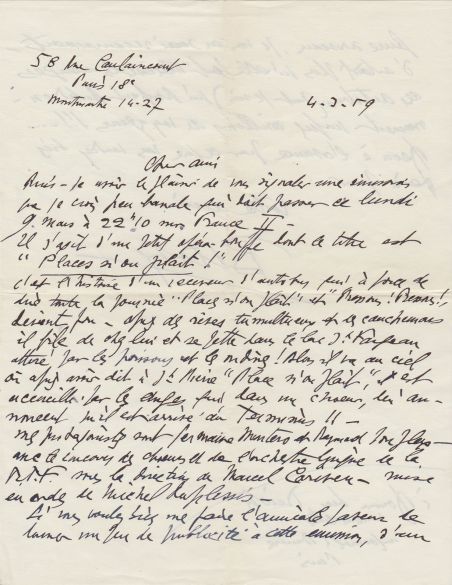 58 Rue Caulaincourt
Paris 18e
Montmartre 14-27
4-3-59
Cher ami
Puis-je avoir le plaisir de vous signaler une émission
que je crois peu banale qui doit passer ce lundi
9 mars à 22h10 sur France II -
Il s'agit d'un petit opéra-bouffe dont le titre est
"Places s'ou plaît!"
C'est l'histoire d'un receveur d'autobus qui à force de
dire toute la journée "Place s'ou plaît" et "Pressons! Pressons!"
devient fou - après des rêves tumultueux et des cauchemars
il file de chez lui et se jette dans le lac St Fargeau
attiré par les poissons et se noie! Alors il va au ciel
où après avoir dit à St Pierre "Place s'ou plaît", il est
accueilli par les anges qui, dans un chœur, lui an-
noncent qu'il est arrivé au Terminus!! -
Mes protagonistes sont Germaine et Raymond
avec le concours des chœurs et de l'orchestre lyrique de la
R.T.F. sous la direction de Marcel Cariven - mise
en ondes de Michel
Si vous vouliez bien me faire l'amicale faveur de
donner un peu de publicité à cette émission, d'un